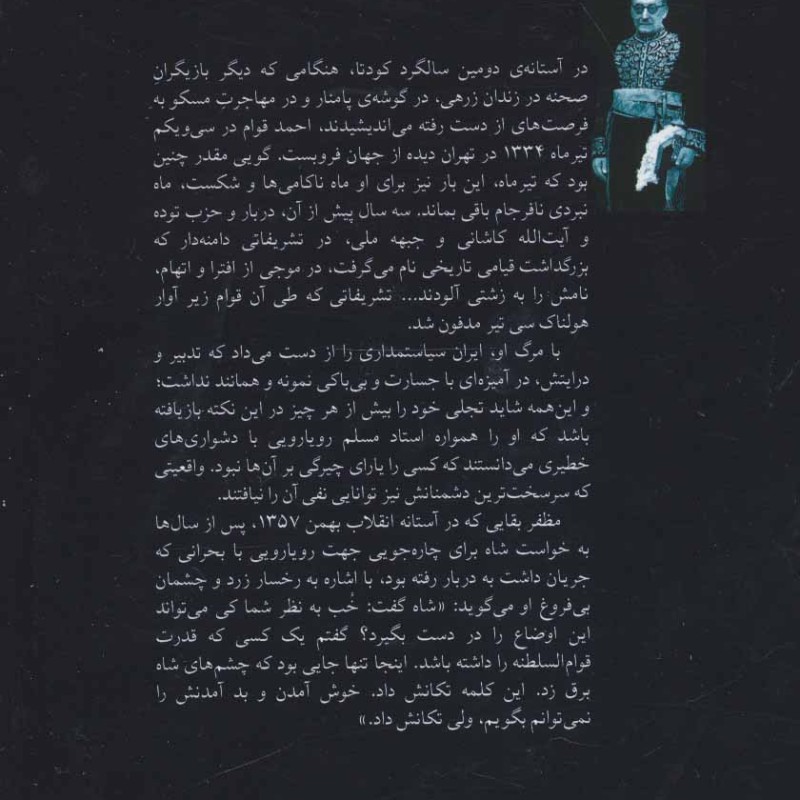 در آستانه‌ی دومین سالگرد کودتا، هنگامی که دیگر بازیگران
صحنه در زندان زرهی، در گوشه‌ی پامنار و در مهاجرتِ مسکو به
فرصت‌های از دست رفته می‌اندیشیدند، احمد قوام در سی‌ویکم
تیرماه ۱۳۳۴ در تهران دیده از جهان فروبست. گویی مقدر چنین
بود که تیرماه، این بار نیز برای او ماه ناکامی‌ها و شکست، ماه
نبردی نافرجام باقی بماند. سه سال پیش از آن، دربار و حزب توده
و آیت‌الله کاشانی و جبهه ملی، در تشریفاتی دامنه‌دار که
بزرگداشت قیامی تاریخی نام می‌گرفت، در موجی از افترا و اتهام،
نامش را به زشتی آلودند... تشریفاتی که طی آن قوام زیر آوار
هولناک سی تیر مدفون شد.
با مرگ او، ایران سیاستمداری را از دست می‌داد که تدبیر و
درایتش، در آمیزه‌ای با جسارت و بی‌باکی نمونه و همانند نداشت؛
و این‌همه شاید تجلی خود را بیش از هر چیز در این نکته بازیافته
باشد که او را همواره استاد مسلم رویارویی با دشواری‌های
خطیری می‌دانستند که کسی را یارای چیرگی بر آن‌ها نبود. واقعیتی
که سرسخت‌ترین دشمنانش نیز توانایی نفی آن را نیافتند.
مظفر بقایی که در آستانه انقلاب بهمن ۱۳۵۷، پس از سال‌ها
به خواست شاه برای چاره‌جویی جهت رویارویی با بحرانی که
جریان داشت به دربار رفته بود، با اشاره به رخسار زرد و چشمان
بی‌فروغ او می‌گوید: «شاه گفت: خُب به نظر شما کی می‌تواند
این اوضاع را در دست بگیرد؟ گفتم یک کسی که قدرت
قوام‌السلطنه را داشته باشد. اینجا تنها جایی بود که چشم‌های شاه
برق زد. این کلمه تکانش داد. خوش آمدن و بد آمدنش را
نمی‌توانم بگویم، ولی تکانش داد.»